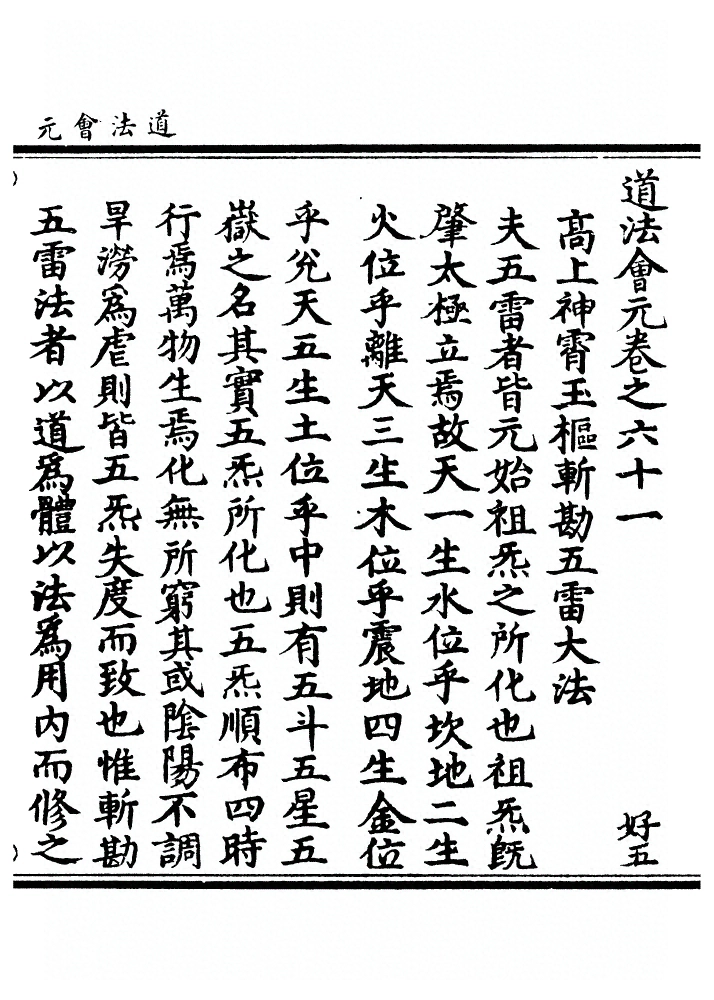 道法會元
道法會元卷之六十一 好五
高上神霄玉樞斬勘五雷大法
夫五雷者皆元始祖炁之所化也祖炁既
肇太極立焉故天一生水位乎坎地二生
火位乎離天三生木位乎震地四生金位
乎兊天五生土位乎中則有五斗五星五
嶽之名其實五炁所化也五炁順布四時
行焉萬物生焉化無所窮其或陰陽不調
旱澇為虐則皆五炁失度而致也惟斬勘
五雷法者以道為體以法為用內而修之